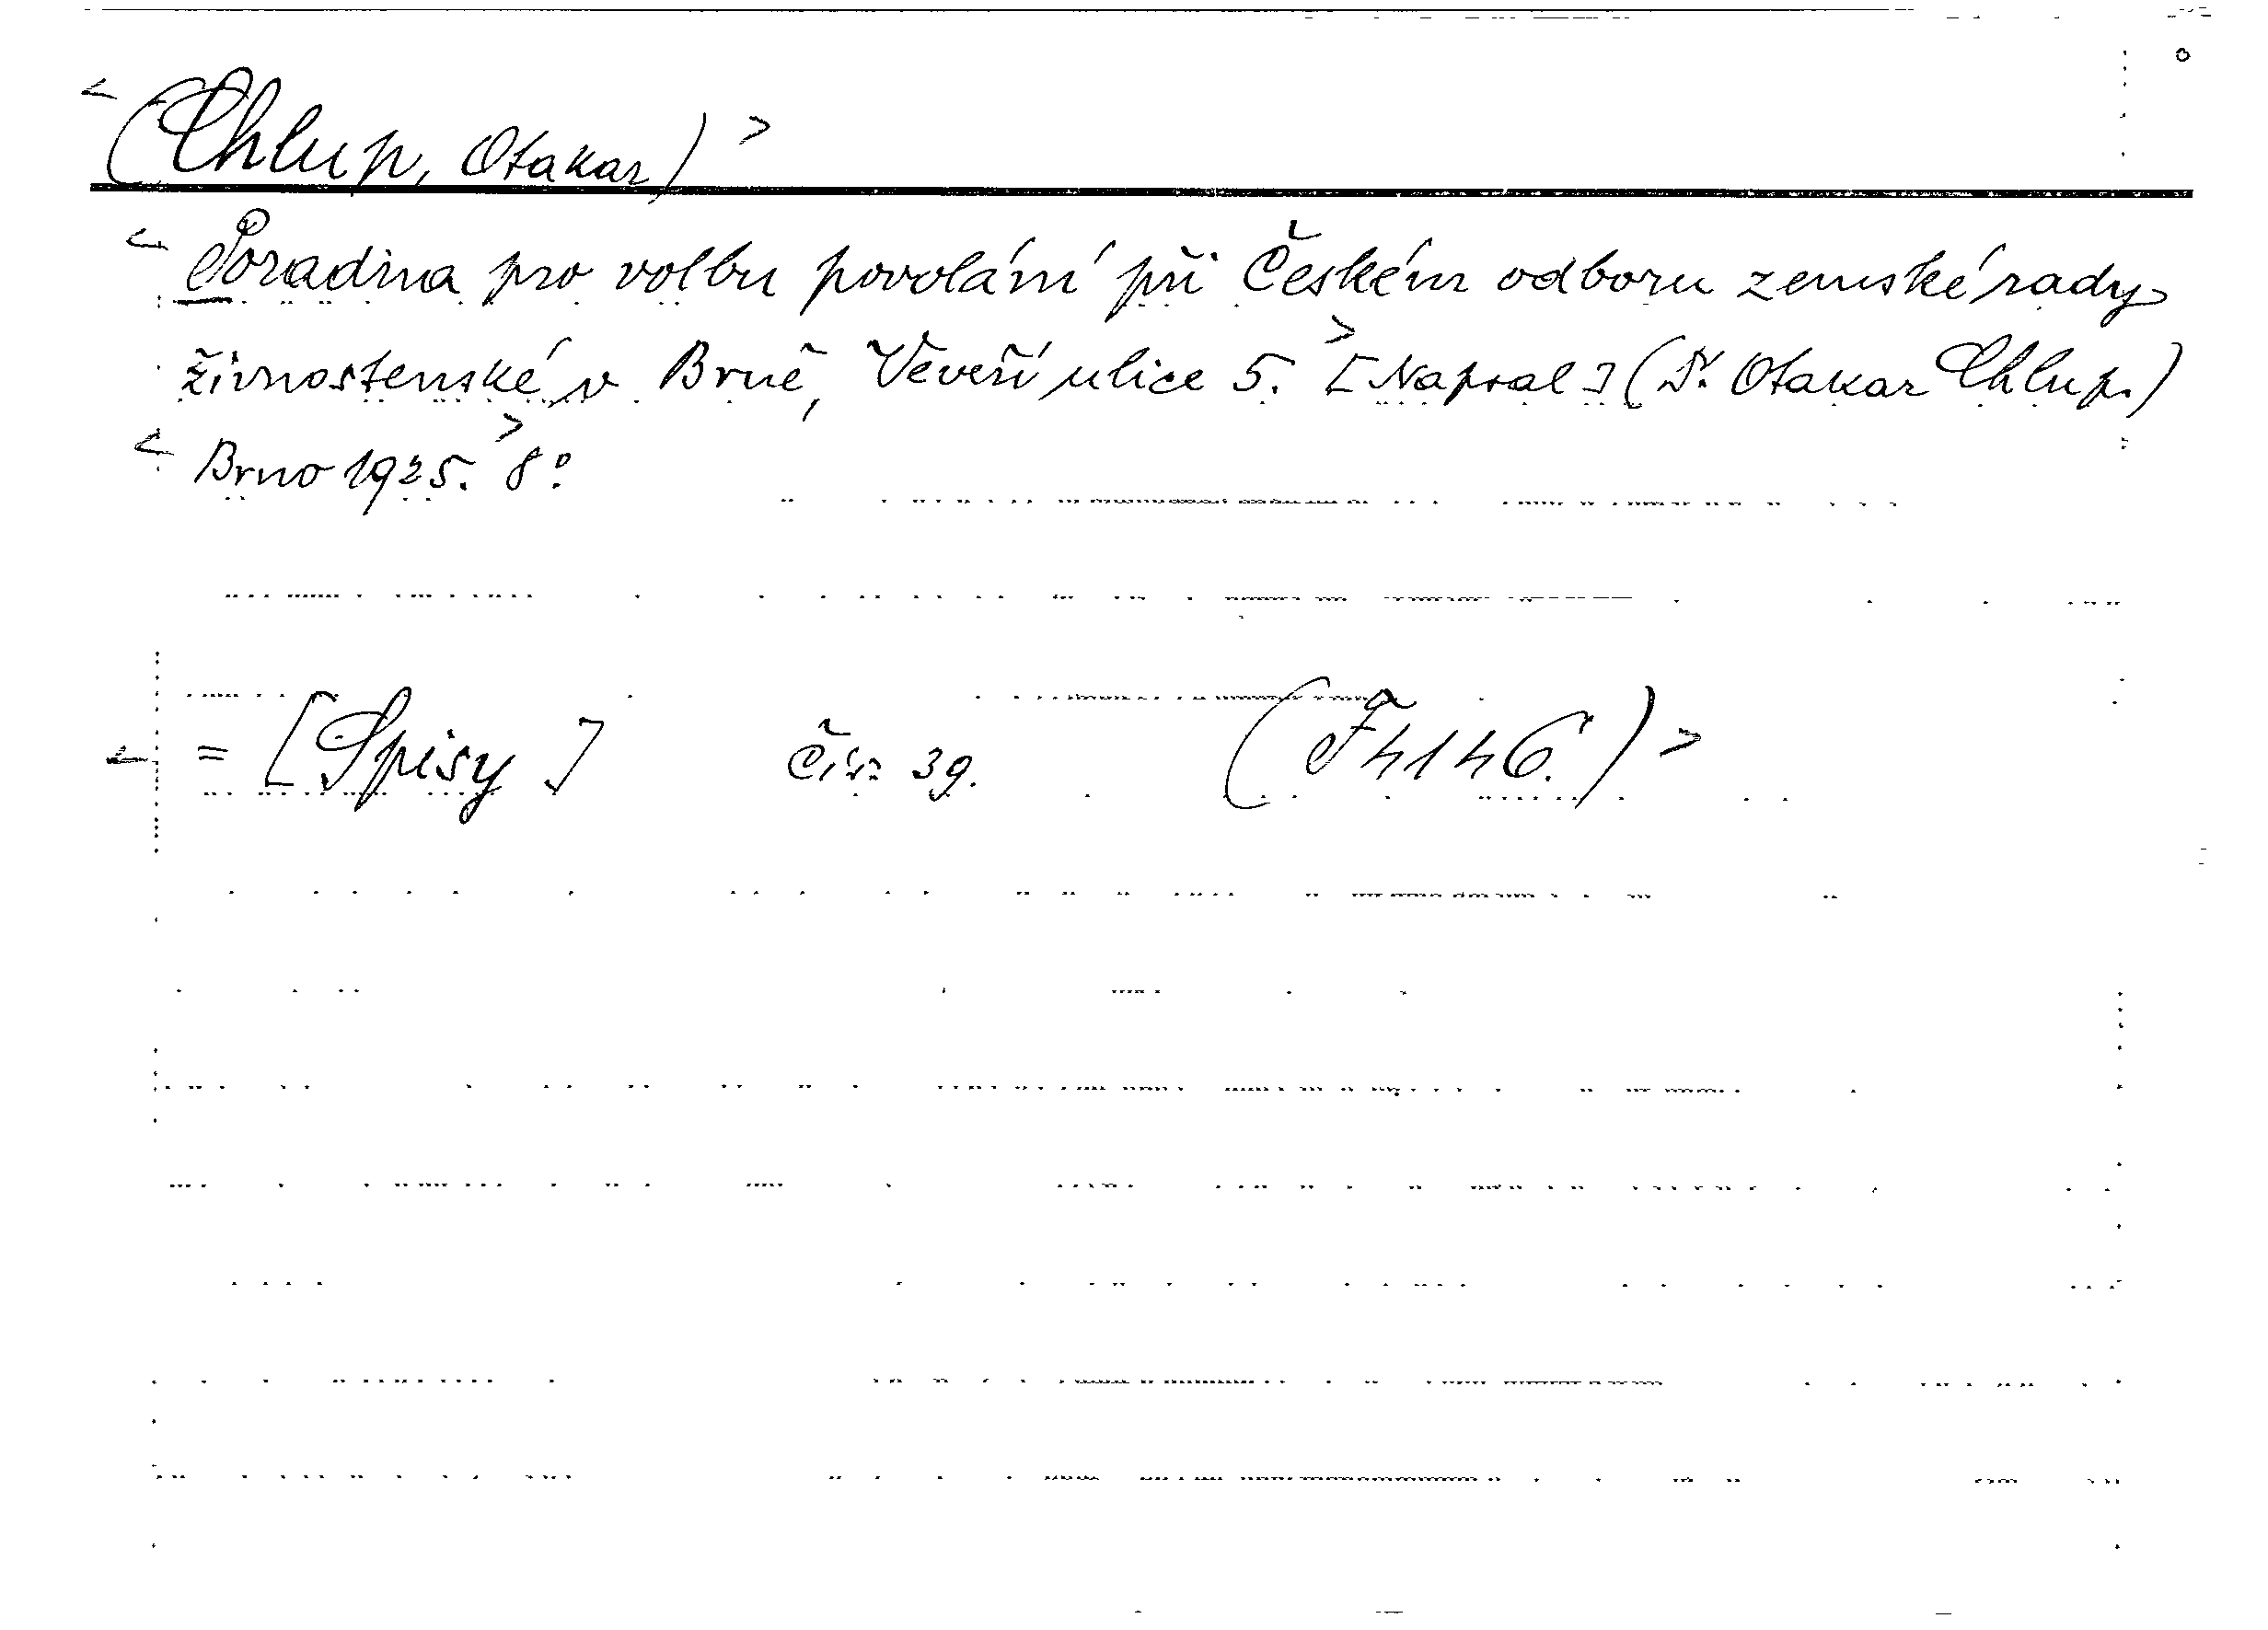 <(Chlup, Otakar)>
<Poradna pro volbu povolání při Českém odboru zemské rady
živnostenské v Brně, Veveří ulice 5.> [Napsal] (Dr. Otakar Chlup.)
<Brno 1925.> 8°.
<= [Spisy] čís. 39.